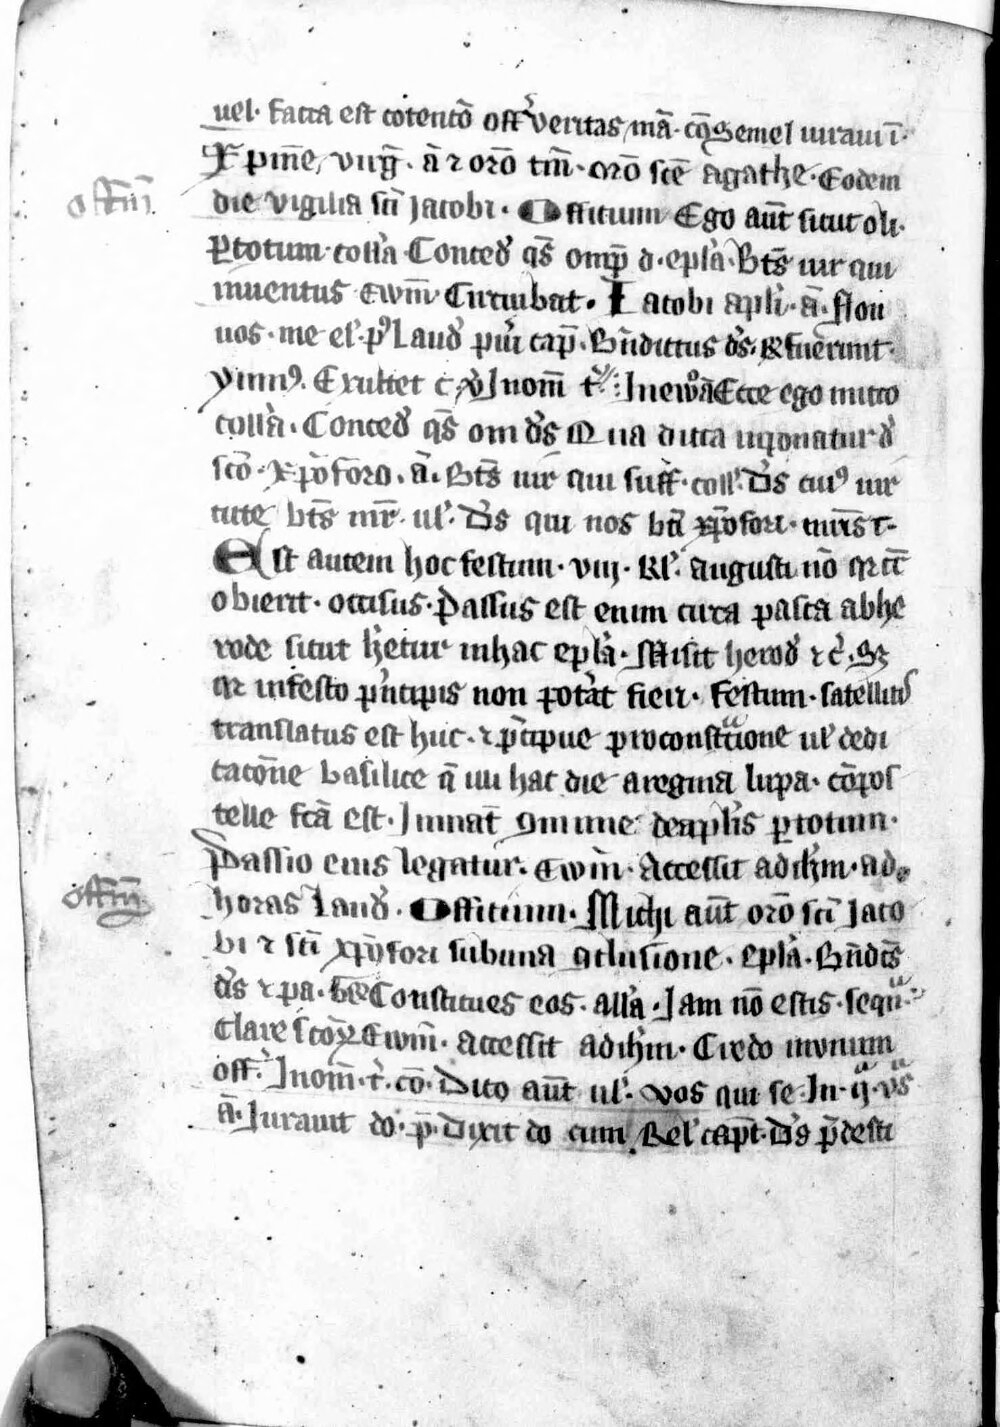 uel. facta est cotentõ off' veritas mã. cõ Semel iuraui ĩ.
Xpine, virg̃. ã ⁊ orõ tm̃. orõ scẽ agathe. Eodem
offm̃
die vigilia sc̃i Jacobi. Offitium Ego aut̃ sicut oli.
ꝑ totum. coll'a Conced' q̃s omp̃ d. epl'a. Bt̃s uir qui
inuentus Ewm̃ Circuibat. Iacobi apl'i. ã. Non
uos. me el'. p' Laud' pri' cap̃. Bñdictus d's. R fuerunt
ymnꝰ. Exultet c In nom̃ t In ew ã Ecce ego mitto
coll'a. Conced' q̃s om d's Qua dicta d'
sc̃o. xp̃oforo. ã. Bt̃s uir qui suff. coll'. D's cuiꝰ uir
tute bt̃s mr̃. ul'. D's qui nos bt̃i xp̃ofori.
Est autem hoc festum. viij. kl'. augusti nõ qr tc̃
obierit. occisus. Passus est enim circa pasca abhe
rode sicut h̃etur in hac epl'a. Misit herod' ⁊ c̃. S⁊
qr in festo p'ncipis non potãt fieri. festum. satelliti
translatus est huc. ⁊ p'cipue pro constr̃ctione ul' dedi
catõne basilice q̃ in hac die a regina lupa. cõpos
telle fc̃a est. Inuitat̃ ꝯmune de apl'is ꝑ totum.
Passio eius legatur. Ewm̃. Accessit ad ih̃m. ad
offm̃
horas Laud'. Offitium. Michi aut̃ orõ sc̃i Jaco
bi ⁊ sc̃i xp̃ofori sub una ꝯclusione. epl'a. Bñdc̃s
d's ⁊ pa. Constitues eos. all'a. Iam nõ estis. sequ
Clare scõꝝ Ewm̃. Accessit ad ih̃m. Credo in unum
off'. In om̃. t'. cõ. Dico aut̃ ul'. vos qui se In. ij. v's
ã. Iurauit do. p̃. Dixit do cum Rel' capt̃. D's p̃desti